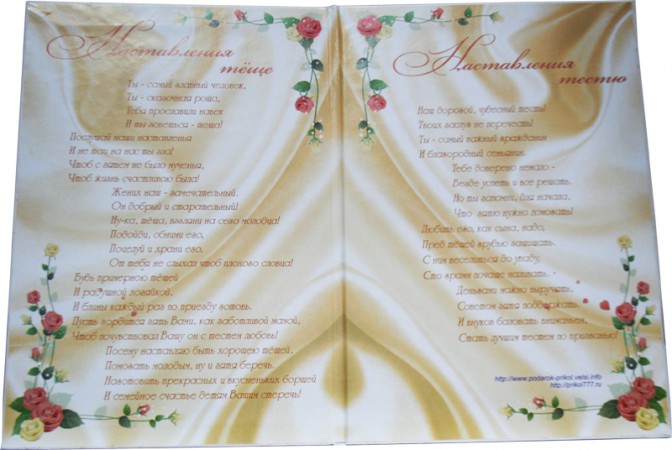 Наставления
тёще
Ты - самый главный человек,
Ты - сказочная роща,
Тебя прославили навек
И ты зовешься - теща!
Послушай наши наставленья
И не таи на нас ты зла!
Чтоб с зятем не было мученья,
Чтоб жизнь счастливою была!
Жених наш - замечательный,
Он добрый и старательный!
Ну-ка, тёща, взгляни на сего молодца!
Подойди, обними его,
Поцелуй и храни его,
От тебя не слыхал чтоб плохого словца!
Будь примерною тёщей
И радушной хозяйкой,
И блины каждый раз по приезду готовь.
Пусть гордится зять Вами, как заботливой мамой,
Чтоб почувствовал Вашу он с тестем любовь!
Посему наставляю быть хорошею тёщей,
Помогать молодым, ну и зятя беречь.
Наготовить прекрасных и вкусненьких борщей
И семейное счастье детям Вашим стеречь!
Наставления
тестю
Наш дорогой, чудесный тесть!
Твоих заслуг не перечесть!
Ты - самый важный гражданин
И благородный семьянин.
Тебе доверено немало -
Везде успеть и все решать.
Но ты запомни, для начала,
Что зятю нужно помогать!
Любить его, как сына, надо,
Пред тёщей грудью защищать.
С ним веселиться до упаду,
Сто грамм почаще наливать.
Деньжами можно выручать,
Советом зятя поддержать
И внуков баловать вниманьем,
Стать лучшим тестем по призванью!
http://www.podarok-prikol.velsi.info
http://prikol777.ru